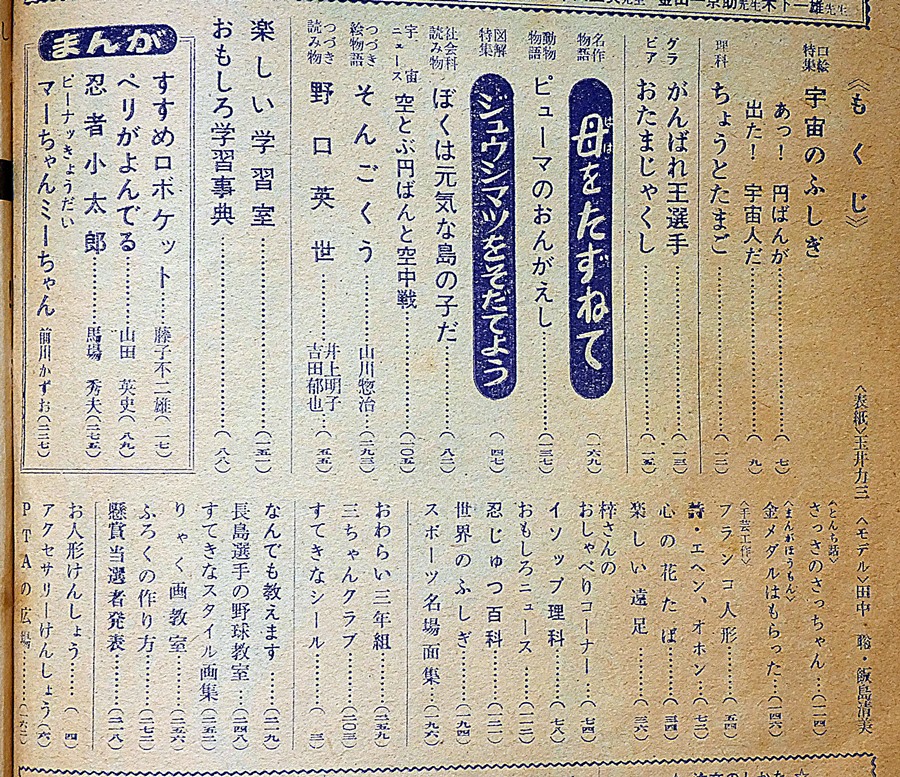 〈もくじ〉
〈表紙〉玉井力三 〈モデル〉田中 聡・飯島清美
口絵特集 宇宙のふしぎ
あっ! 円ばんが……(七)
出た! 宇宙人だ……(九)
理科 ちょうとたまご……(一二)
グラビア がんばれ王選手……(一三)
おたまじゃくし……(一五)
名作物語 母をたずねて……(一六九)
はは
動物物語 ピューマのおんがえし……(一三七)
図解特集 ジュウシマツをそだてよう(四七)
社会科読み物 ぼくは元気な島の子だ……(八二)
宇宙ニュース 空とぶ円ばんと空中戦……(二〇五)
つづき絵物語 そんごくう……山川惣治……(二九三)
つづき読み物 野口英世……井上明子 吉田郁也……(五五)
楽しい学習室……(一五一)
おもしろ学習事典……(八八)
まんが
すすめロボケット……藤子不二雄(一七)
ペリがよんでる……山田英史(八九)
忍者小太郎……馬場秀夫(二七五)
ピーナッきょうだい
マーちゃんミーちゃん 前川かずお(二二七)
〈とんち話〉
さっさのさっちゃん……(一二四)
〈まんがほうもん〉
金メダルはもらった……(一四六)
〈手芸工作〉
フランコ人形……(五四)
詩・エヘン、オホン……(七二)
心の花たば……(三四)
楽しい遠足……(三六)
梓さんの
おしゃべりコーナー……(七四)
イソップ理科……(七八)
おもしろニュース……(八〇)
忍じゅつ百科……(二二一)
世界のふしぎ……(一九四)
スポーツ名場面集(一九六)
おわらい三年組……(二五九)
三ちゃんクラブ……(二〇三)
すてきなシール……(三)
なんでも教えます……(二一九)
長島選手の野球教室……(二四八)
すてきなスタイル画集(二五二)
りゃく画教室……(二五六)
ふろくの作り方……(二七二)
懸賞当選者発表……(二一八)
お人形けんしょう……(四)
アクセサリーけんしょう(六)
PTAの広場……